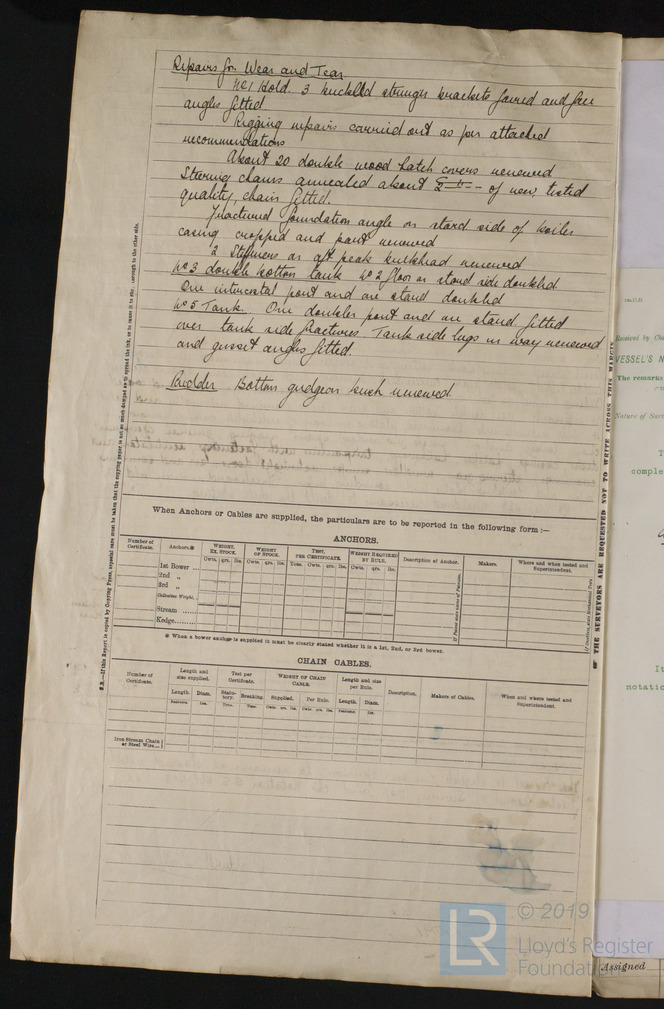 Repairs for Wear and Tear
No 1 Hold. 3 buckled stringer brackets faired and face
angles fitted
Rigging repairs carried out as per attached
recommendations
About 20 double wood hatch covers renewed
Steering chains annealed about of new tested
quality, chain fitted.
Fractured foundation angle on starbd side of boiler
casing cropped and part renewed
2 Stiffeners on aft peak bulkhead renewed
No 3 double bottom tank No 2 floor on starbd side doubled
One intercostal port and one starbd doubled
No 5 Tank. One doubler port and one starbd fitted
over tank side fractures. Tank side lugs in way renewed
and gusset angles fitted.
Rudder Bottom gudgeon bush renewed
When Anchors or Cables are supplied, the particulars are to be reported in the following form :—
ANCHORS.
Number of Certificate. Anchors.* WEIGHT, EX. STOCK. WEIGHT OF STOCK. TEST, PER CERTIFICATE. WEIGHT REQUIRED BY RULE. Description of Anchor. Makers. Where and when tested and Superintendent.
Cwts. qrs. lbs. Cwts. qrs. lbs. Tons. Cwts. qrs. lbs. Cwts. qrs. lbs.
1st Bower ...
2nd „
3rd „
Collective Weight.
Stream ......
Kedge......
* When a bower anchor is supplied it must be clearly stated whether it is a 1st, 2nd, or 3rd bower.
CHAIN CABLES.
Number of Certificate. Length and size supplied. Test per Certificate. WEIGHT OF CHAIN CABLE. Length and size per Rule. Description. Makers of Cables. When and where tested and Superintendent.
Length. Diam. Statutory. Breaking. Supplied. Per Rule. Length. Diam.
Iron Stream Chain or Steel Wire...
THE SURVEYORS ARE REQUESTED NOT TO WRITE ACROSS THIS MARGIN
Received by
VESSEL'S N
The remarks
Nature of
T
comple
It
notatic
Assigned
LR
© 2019
Lloyd's Register
Foundation